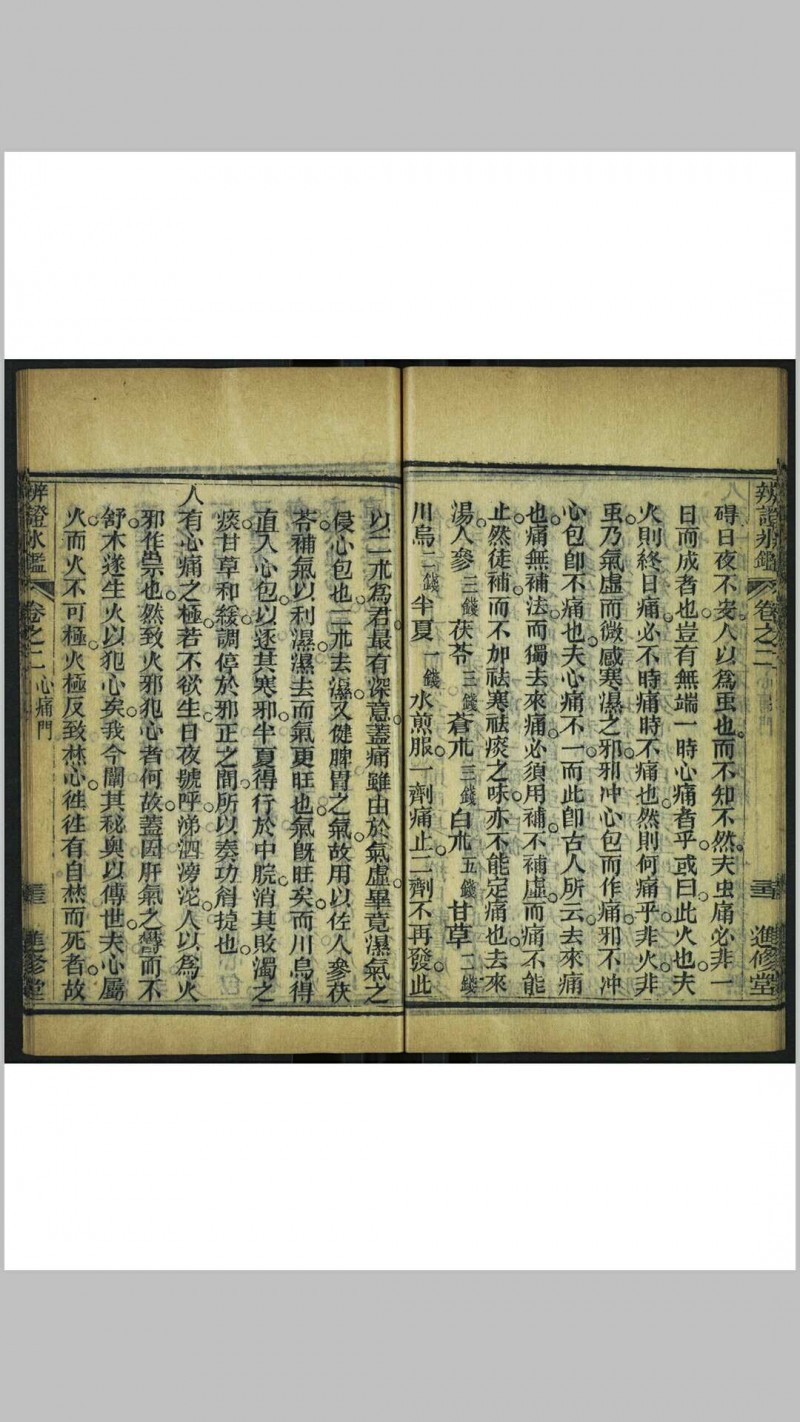 辨證冰鑑
卷之二
進修堂
碍日夜不安人以為虫也而不知不然夫虫痛必非一
日而成者也豈有無端一時心痛者乎或曰此火也夫
火則終日痛必不時痛時不痛也然則何痛乎非火非
虫乃氣虛而微感寒濕之邪邪冲心包而作痛邪不冲
心包卽不痛也夫心痛不一而此卽古人所云去來痛
也痛無補法而獨去來痛必須用補不補虛而痛不能
止然徒補而不加祛寒祛痰之味亦不能定痛也去來
湯人參三錢茯苓三錢蒼朮三錢白朮五錢甘草二錢
川烏二錢半夏一錢水煎服一劑痛止二劑不再發此
以二朮為君最有深意蓋痛雖由於氣虛畢竟濕氣之
侵心包也二朮去濕又健脾胃之氣故用以佐人參茯
苓補氣以利濕濕去而氣更旺也氣旣旺矣而川烏得
直入心包以逐其寒邪半夏得行於中脘消其敗濁之
痰甘草和緩調停於邪正之間所以奏功甪㨗也
人有心痛之極若不欲生日夜號呼涕泗滂沱人以為火
邪作祟也然致火邪犯心者何故蓋因肝氣之欝而不
舒木遂生火以犯心矣我今闡其秘奥以傳世夫心屬
火而火不可極火極反致焚心徃徃有自焚而死者故
辨證冰鑑
卷之二
心痛門
進修堂